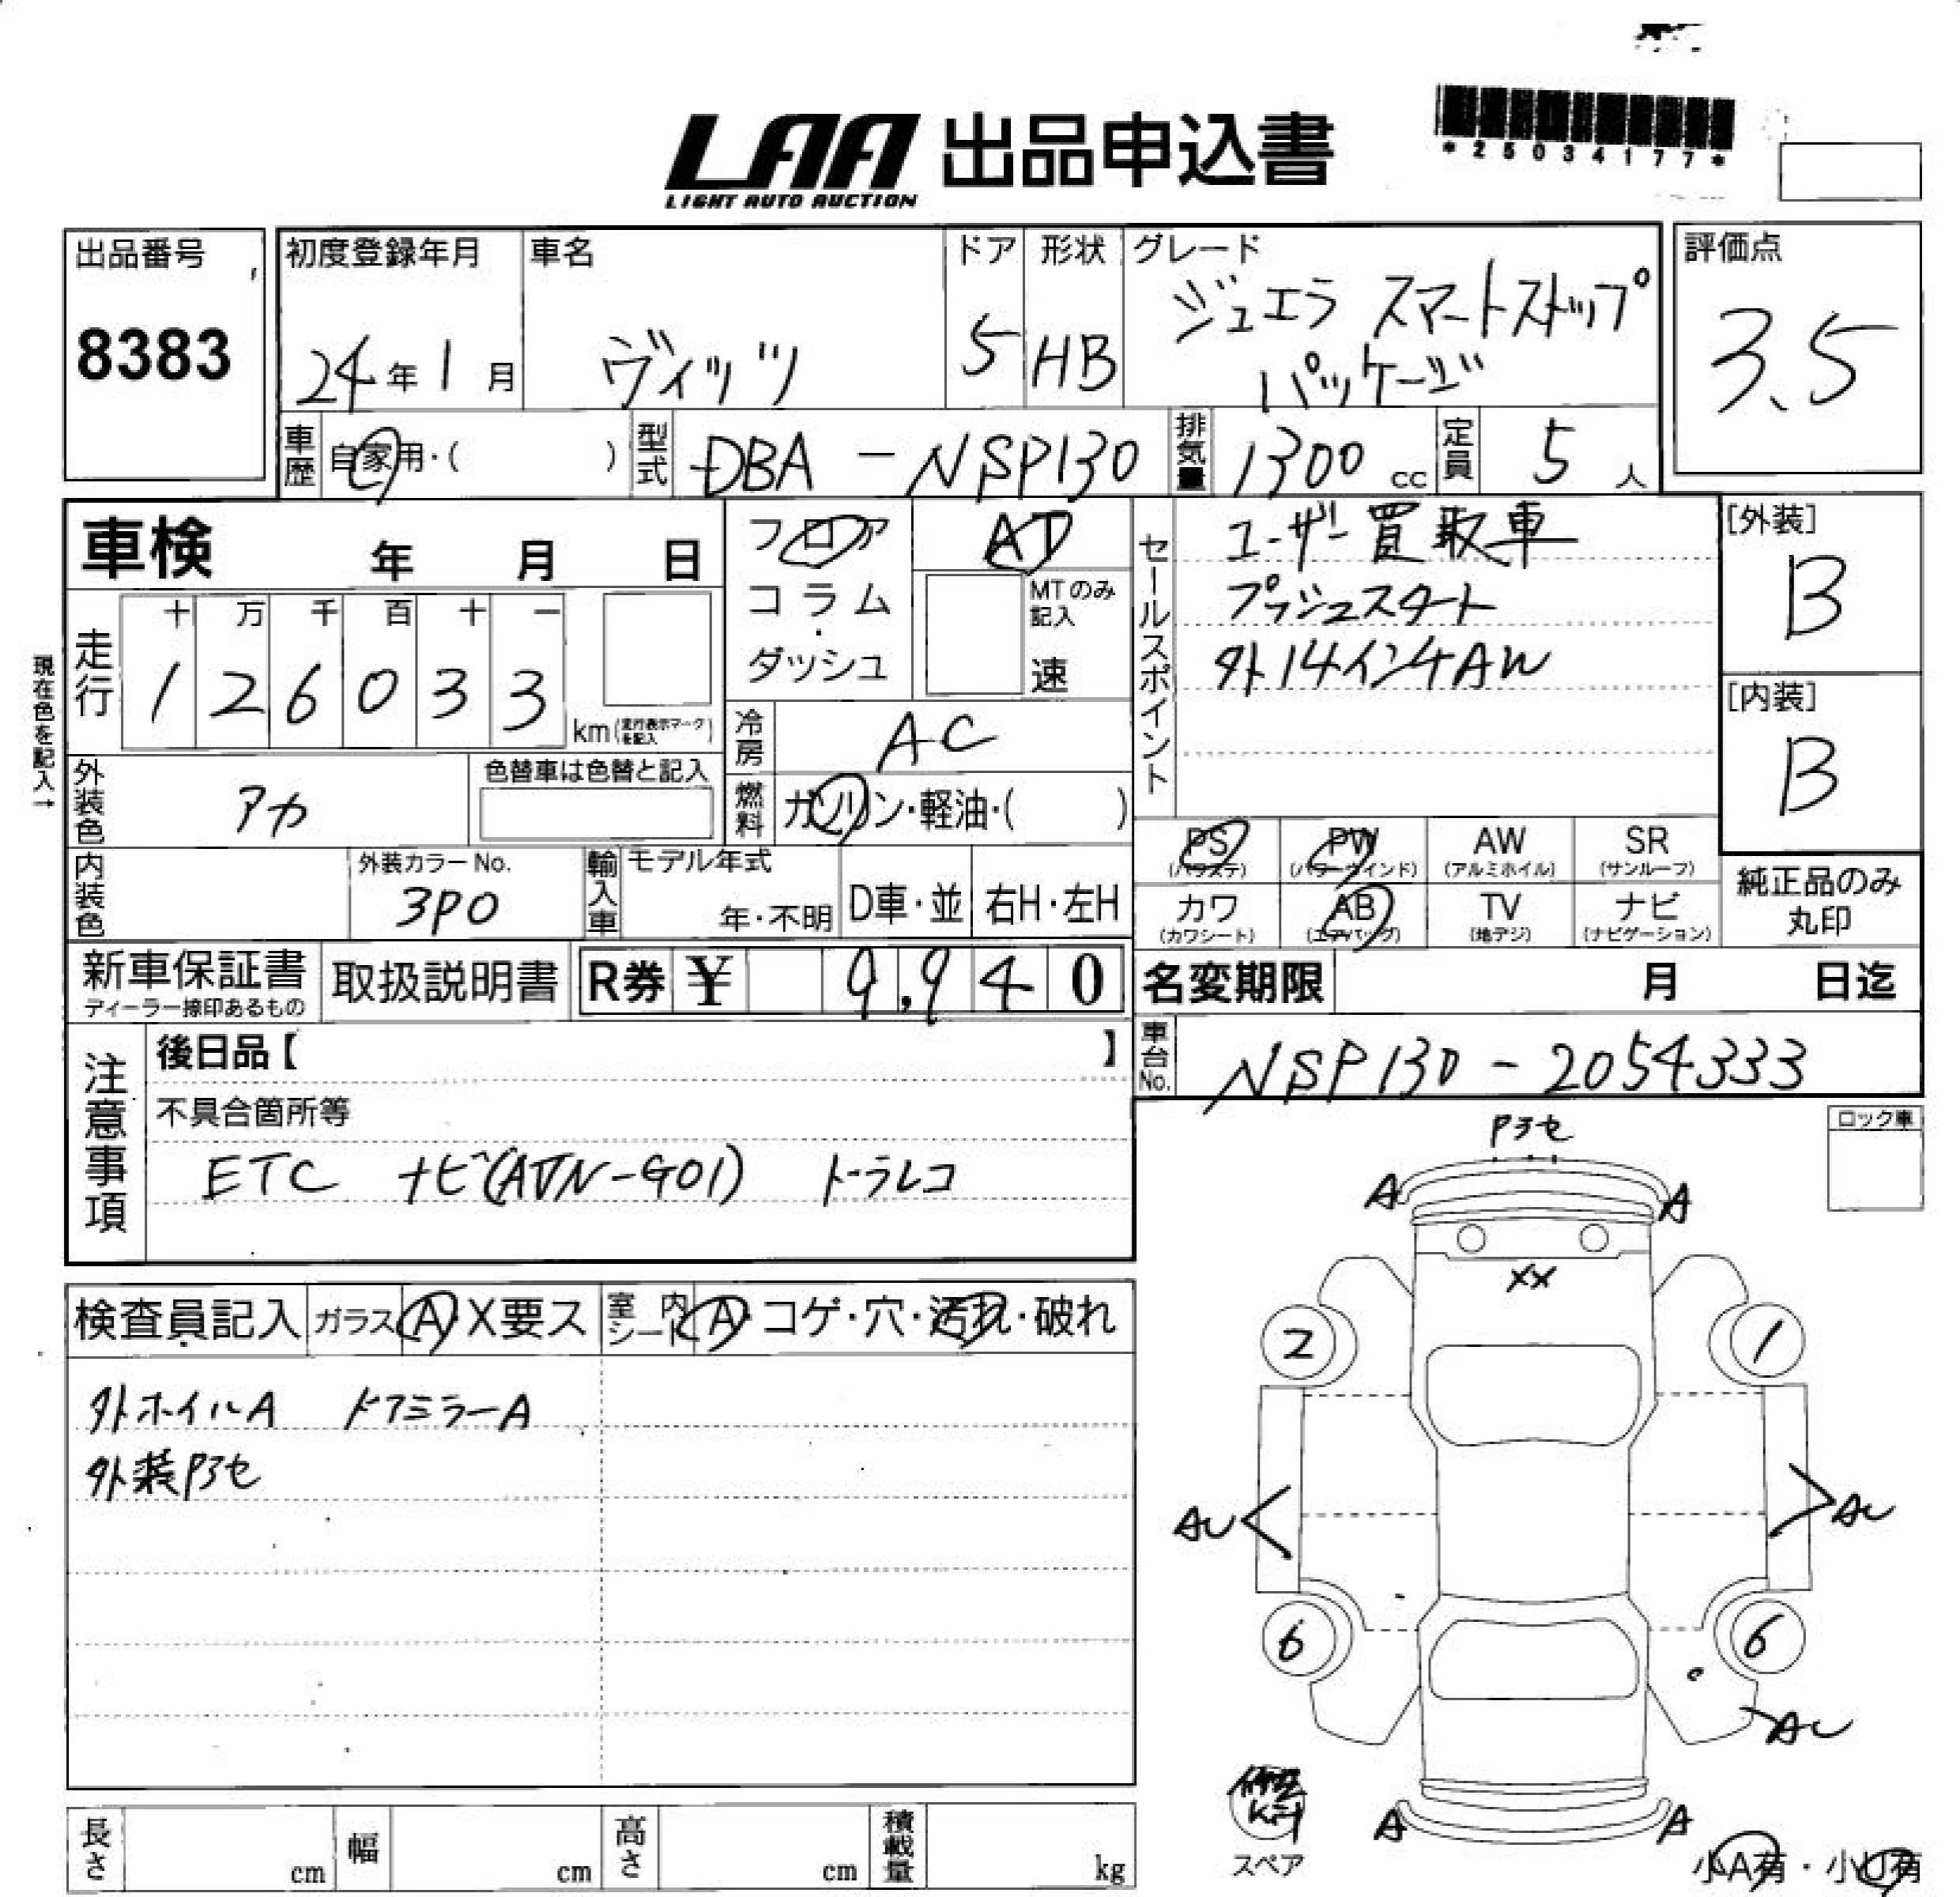 LAA 出品申込書
LIGHT AUTO AUCTION
*25034177*
出品番号
8383
初度登録年月
24年1月
車名
ヴィッツ
ドア
5
形状
HB
グレード
ジュエラ スマートストップ
パッケージ
評価点
3.5
車歴
自家用・( )
型式
DBA-NSP130
排気量
1300 cc
定員
5人
車検 年 月 日
フロア
コラム
・
ダッシュ
AT
MTのみ
記入
速
セールスポイント
ユーザー買取車
プッシュスタート
外14インチAW
[外装]
B
[内装]
B
現在色を記入→
走行
十 万 千 百 十 一
1 2 6 0 3 3
km (走行表示マークを記入)
冷房
AC
外装色
アカ
色替車は色替と記入
燃料
ガソリン・軽油・( )
PS
(パワステ)
PW
(パワーウインド)
AW
(アルミホイル)
SR
(サンルーフ)
カワ
(カワシート)
AB
(エアバッグ)
TV
(地デジ)
ナビ
(ナビゲーション)
純正品のみ
丸印
内装色
外装カラーNo.
3P0
輸入車
モデル年式
年・不明
D車・並
右H・左H
新車保証書
ディーラー捺印あるもの
取扱説明書
R券 ¥ 9,940
名変期限 月 日迄
車台No.
NSP130-2054333
注意事項
後日品【 】
不具合箇所等
ETC ナビ(AVN-G01) ドラレコ
ロック車
検査員記入
ガラス A・X要ス
室内シート A・コゲ・穴・汚れ・破れ
外ホイルA ドアミラーA
外装アラセ
アラセ
A A
XX
2 1
AU AU
6 6
AU
A A
スペア
小A有・小U有
長さ cm
幅 cm
高さ cm
積載量 kg